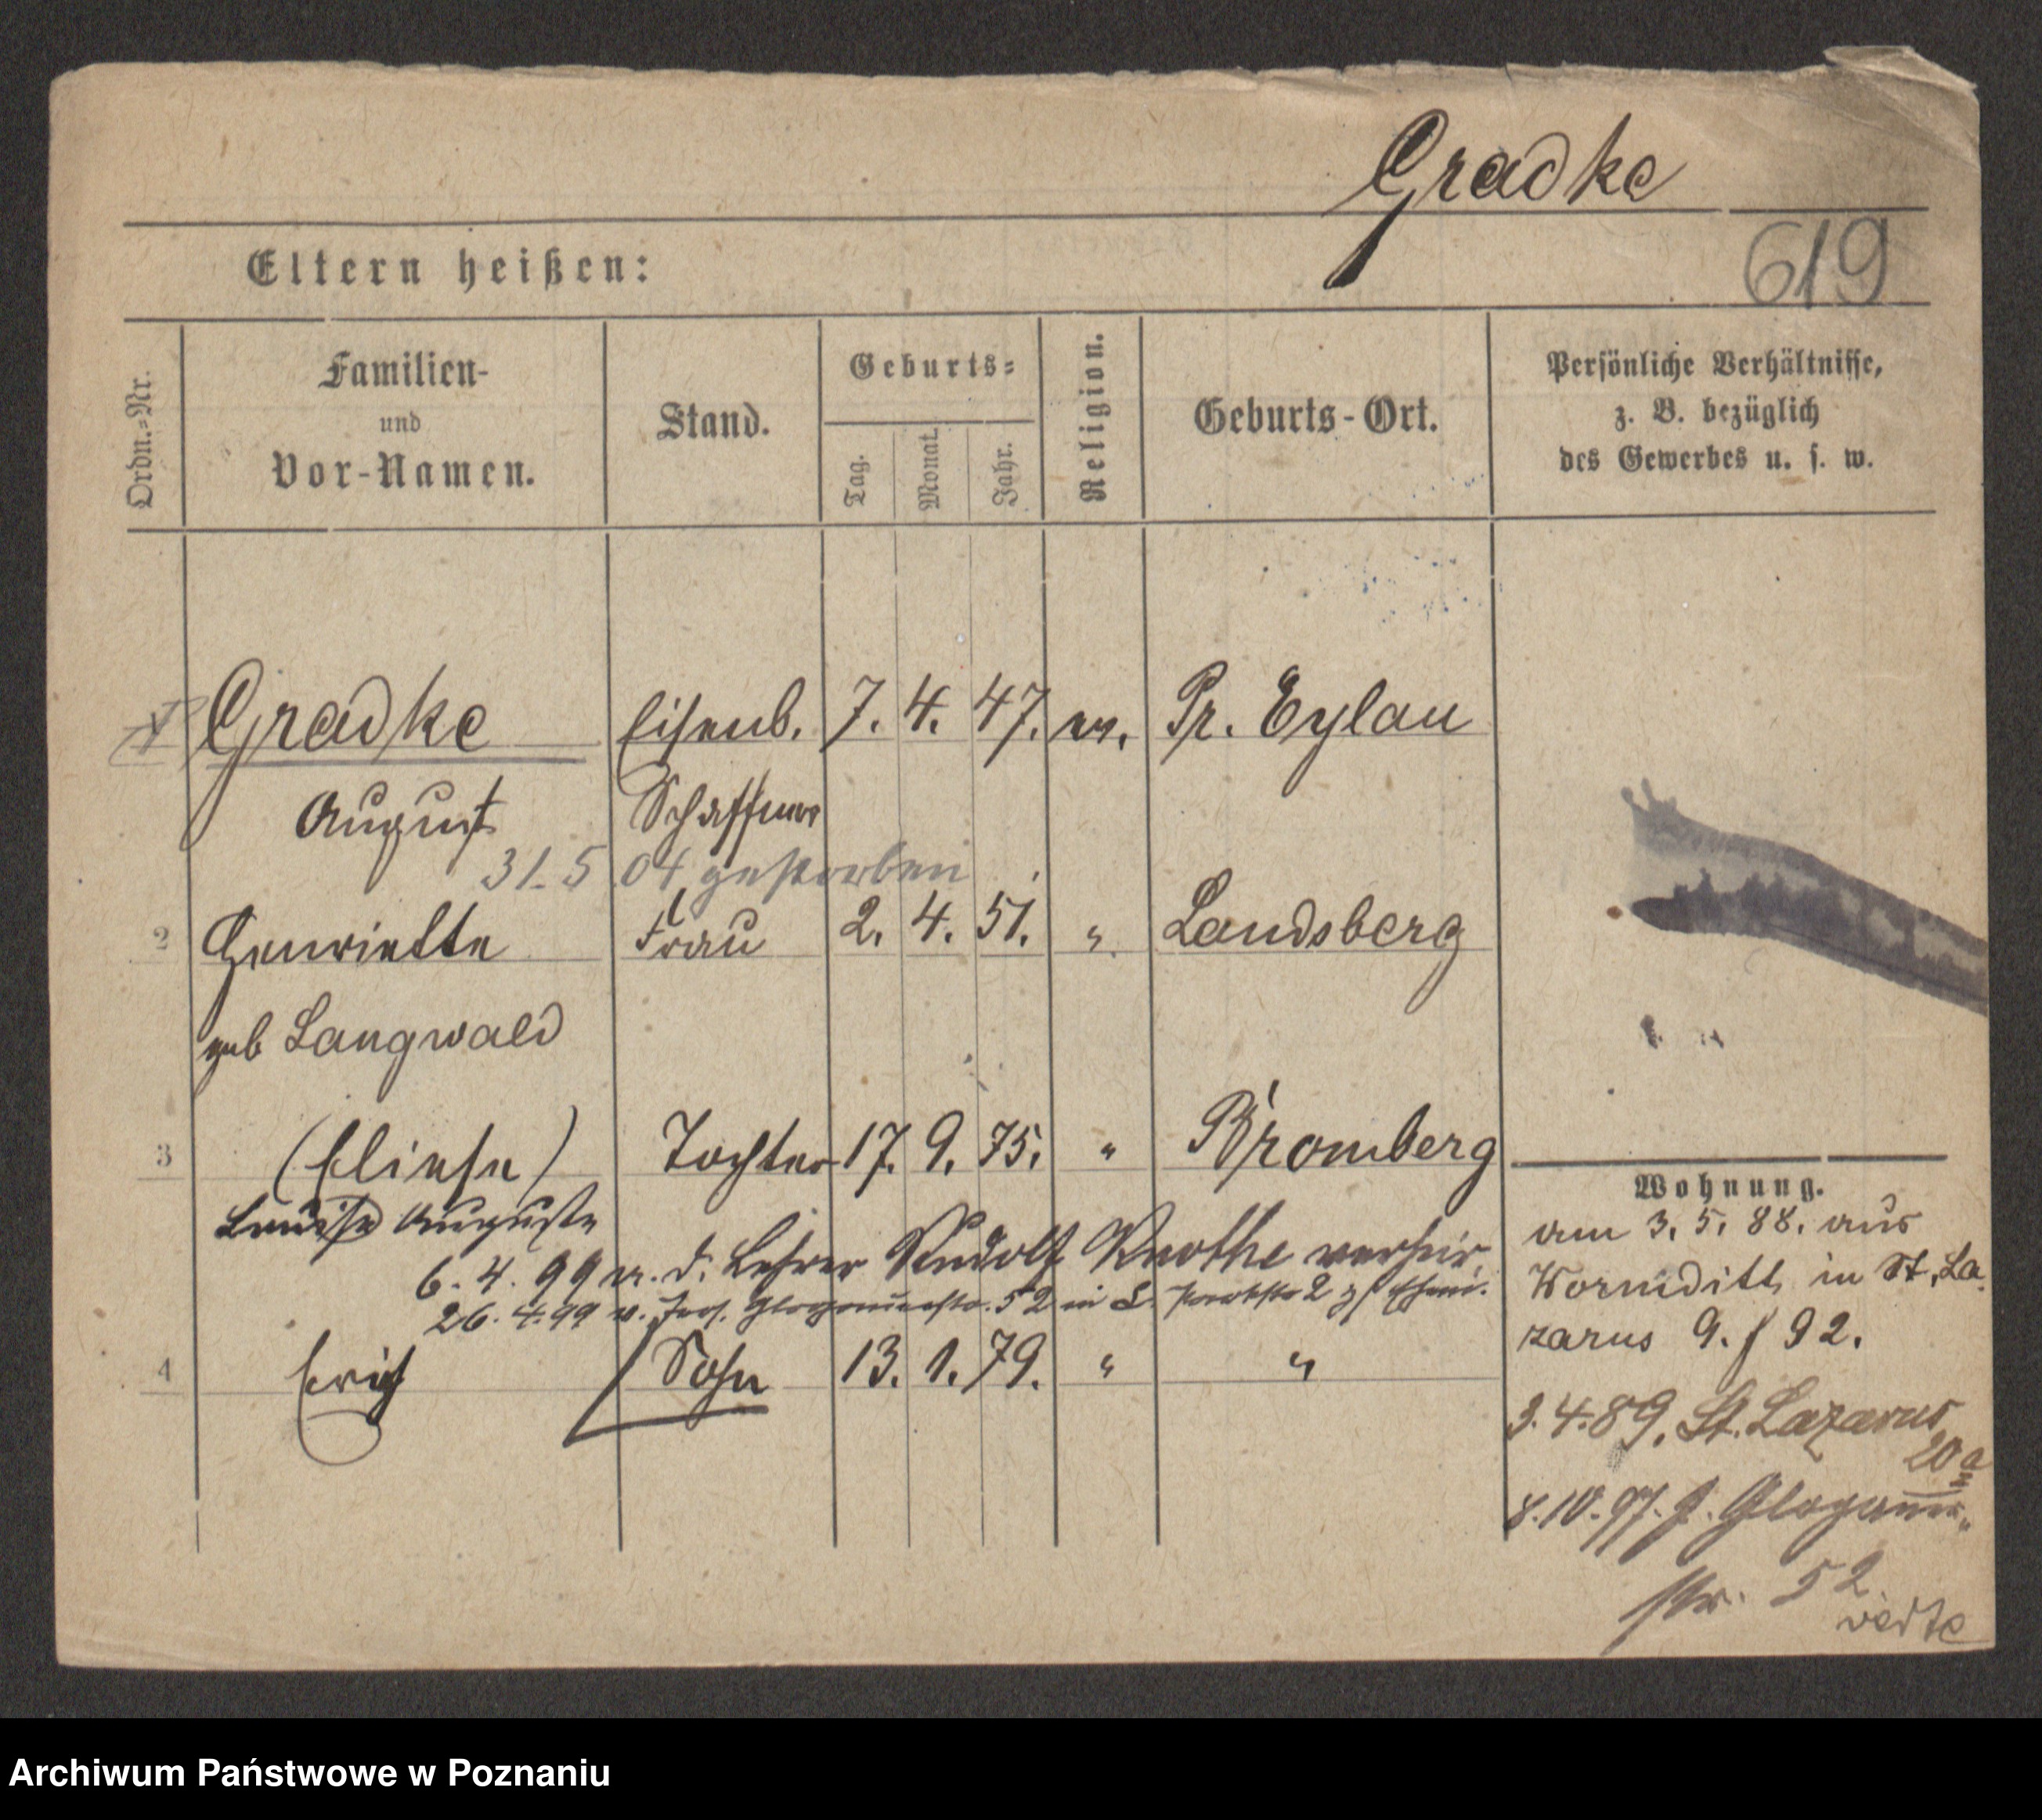 Gradke
619
Eltern heißen:
Ordn.-Nr.
Familien-
und
Vor-Namen.
Stand.
Geburts-
Tag.
Monat.
Jahr.
Religion.
Geburts-Ort.
Persönliche Verhältnisse,
z. B. bezüglich
des Gewerbes u. s. w.
Gradke Eisenb. 7. 4. 47. ev. Pr. Eylau
August Schaffner
31. 5 04 gestorben
2 Henriette Frau 2. 4. 51. " Landsberg
geb Langwald
3 (Eliese) Tochter 17. 9. 75. " Bromberg
Louise Auguste
6. 4. 99 m. d. Lehrer Rudolf Knothe verheir.
26. 4. 99 v. Glogauerstr. 52 in 2
4 Erich Sohn 13. 1. 79. " "
Wohnung.
am 3. 5. 88. aus
Wormditt in St. La
zarus 9. f 92.
3. 4. 89. St. Lazarus
20a
8. 10. 97. J. Glogauer-
str. 52
verte
Archiwum Państwowe w Poznaniu